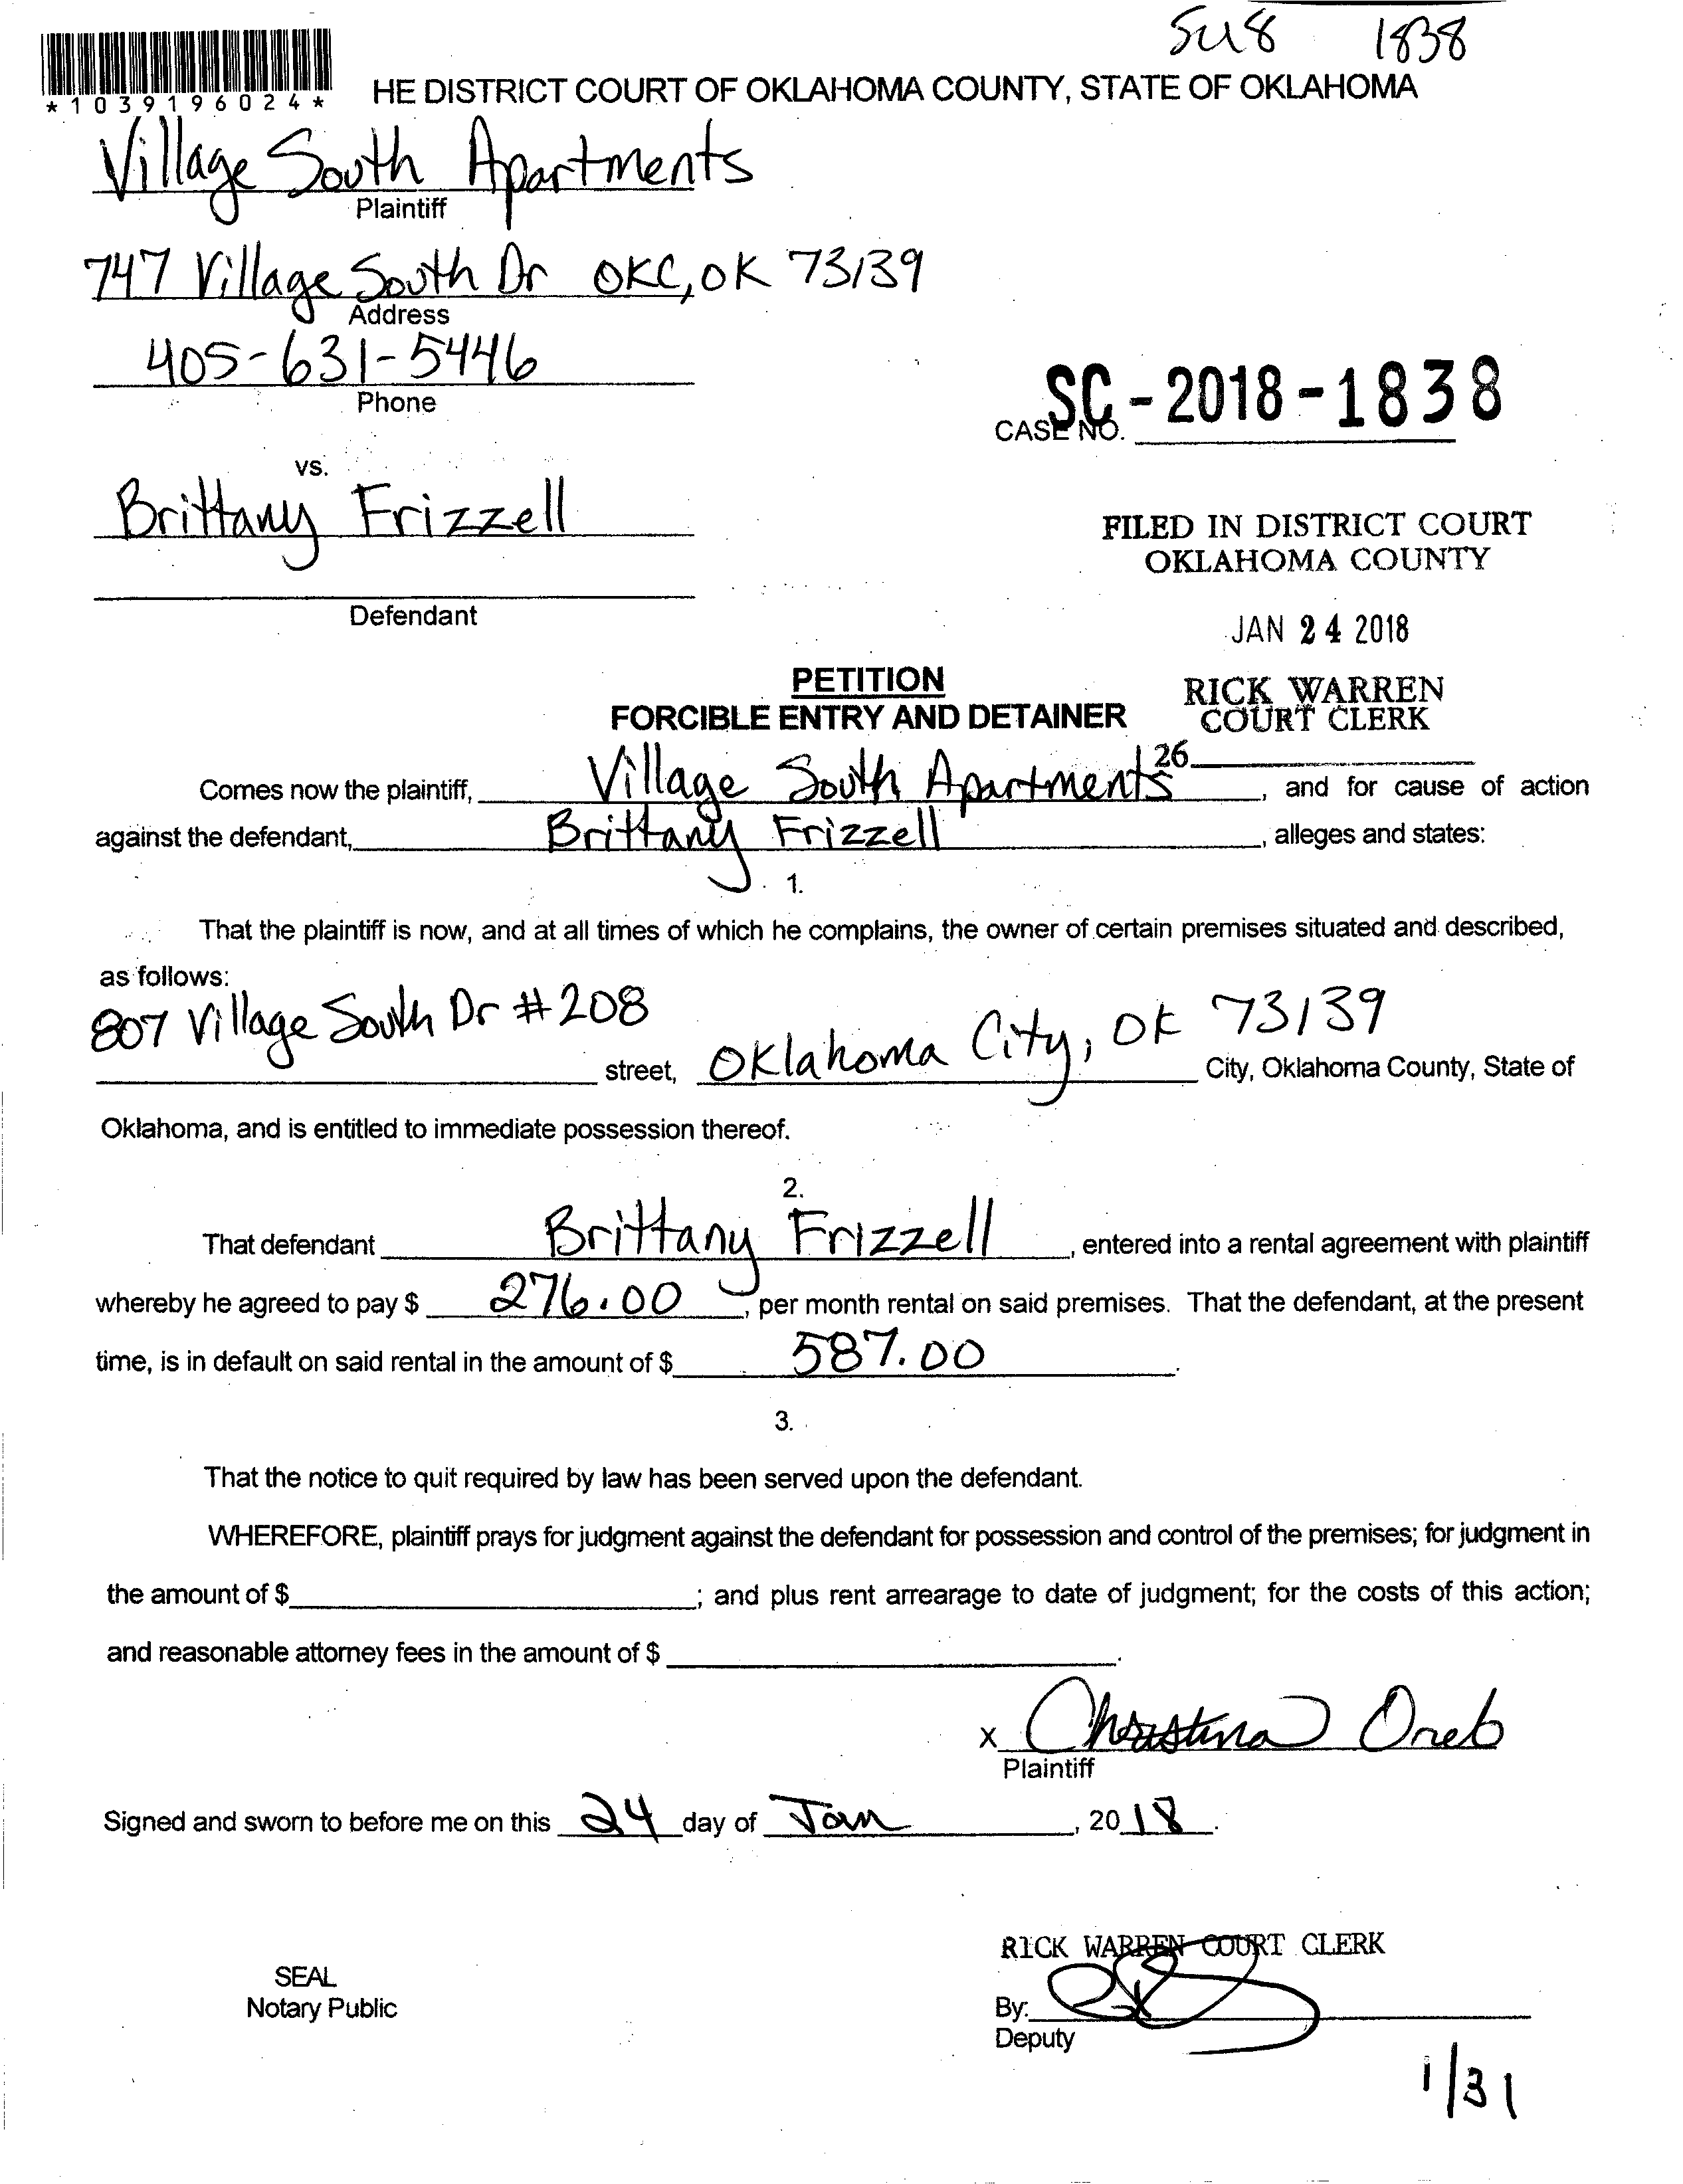 Su8 1838
*1039196024*
HE DISTRICT COURT OF OKLAHOMA COUNTY, STATE OF OKLAHOMA
Village South Apartments
Plaintiff
747 Village South Dr OKC, OK 73139
Address
405-631-5446
Phone
CASE NO. SC-2018-1838
vs.
Brittany Frizzell
Defendant
FILED IN DISTRICT COURT
OKLAHOMA COUNTY
JAN 24 2018
RICK WARREN
COURT CLERK
26
PETITION
FORCIBLE ENTRY AND DETAINER
Comes now the plaintiff, Village South Apartments, and for cause of action
against the defendant, Brittany Frizzell, alleges and states:
1.
That the plaintiff is now, and at all times of which he complains, the owner of certain premises situated and described,
as follows:
807 Village South Dr #208 street, Oklahoma City, OK 73139 City, Oklahoma County, State of
Oklahoma, and is entitled to immediate possession thereof.
2.
That defendant Brittany Frizzell, entered into a rental agreement with plaintiff
whereby he agreed to pay $ 276.00, per month rental on said premises. That the defendant, at the present
time, is in default on said rental in the amount of $ 587.00.
3.
That the notice to quit required by law has been served upon the defendant.
WHEREFORE, plaintiff prays for judgment against the defendant for possession and control of the premises; for judgment in
the amount of $ ; and plus rent arrearage to date of judgment; for the costs of this action;
and reasonable attorney fees in the amount of $ .
X Christina Oreb
Plaintiff
Signed and sworn to before me on this 24 day of Jan, 2018.
RICK WARREN COURT CLERK
SEAL
Notary Public
By:
Deputy
1/31